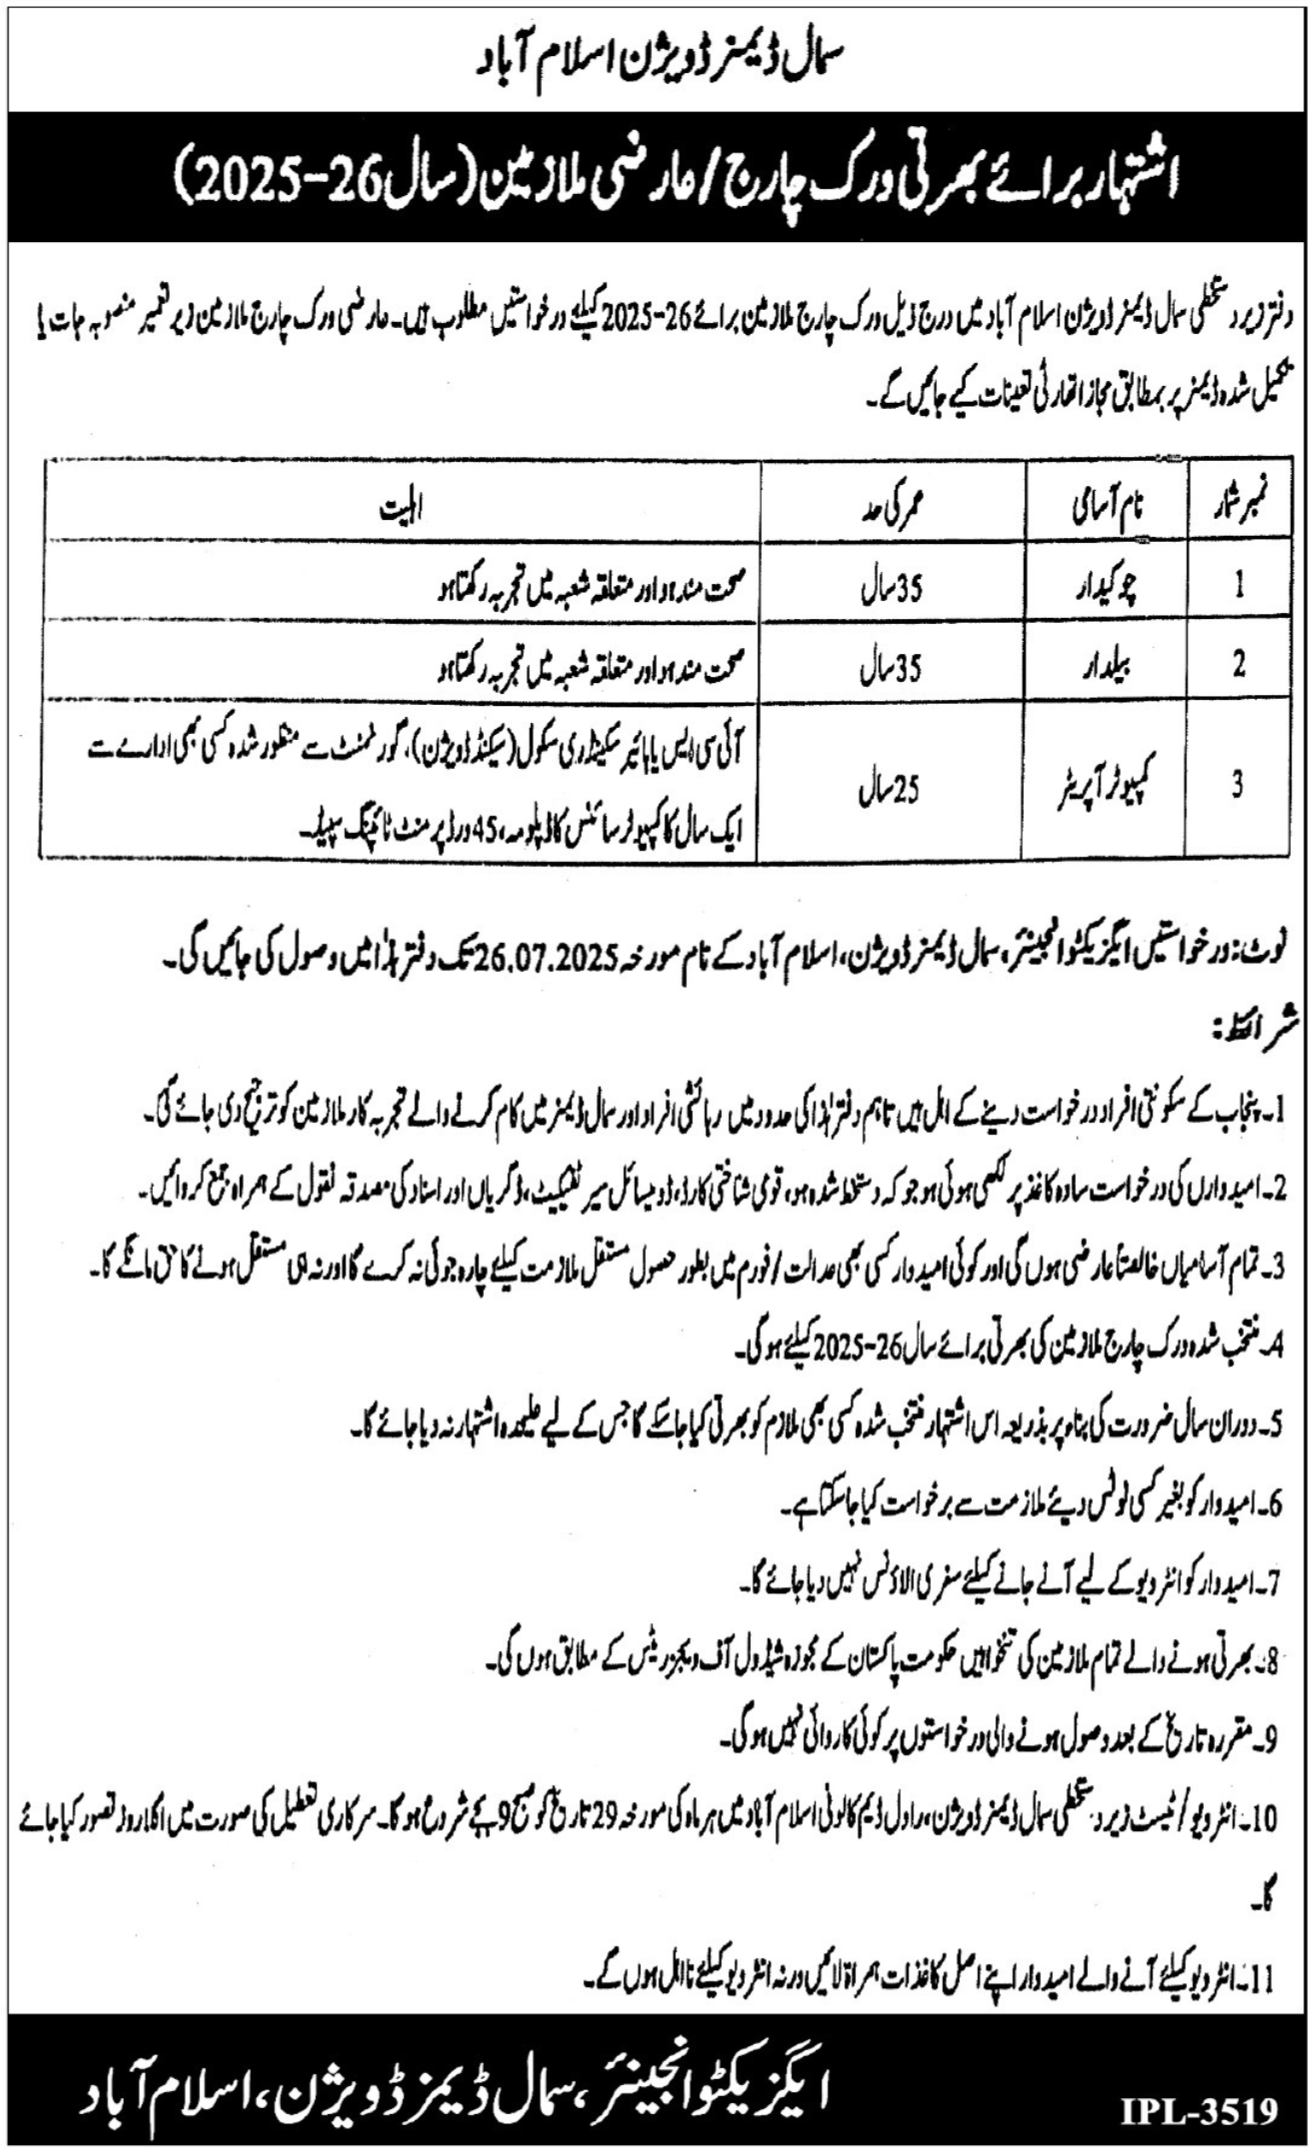 سمال ڈیمز ڈویژن اسلام آباد
اشتہار برائے بھرتی ورک چارج/عارضی ملازمین (سال 26-2025)
دفتر زیر دستخطی سمال ڈیمز ڈویژن اسلام آباد میں درج ذیل ورک چارج ملازمین برائے 26-2025 کیلئے درخواستیں مطلوب ہیں۔ عارضی ورک چارج ملازمین زیر تعمیر منصوبہ جات یا
تکمیل شدہ ڈیمز پر بمطابق مجاز اتھارٹی تعینات کیے جائیں گے۔
نمبر شمار نام آسامی عمر کی حد اہلیت
1 چوکیدار 35 سال صحت مند ہو اور متعلقہ شعبہ میں تجربہ رکھتا ہو
2 بیلدار 35 سال صحت مند ہو اور متعلقہ شعبہ میں تجربہ رکھتا ہو
3 کمپیوٹر آپریٹر 25 سال آئی سی ایس یا ہائیر سکینڈری سکول (سیکنڈ ڈویژن)، گورنمنٹ سے منظور شدہ کسی بھی ادارے سے
ایک سال کا کمپیوٹر سائنس کا ڈپلومہ، 45 ورڈ پر منٹ ٹائپنگ سپیڈ۔
نوٹ: درخواستیں ایگزیکٹو انجینئر، سمال ڈیمز ڈویژن، اسلام آباد کے نام مورخہ 26.07.2025 تک دفتر ہذا میں وصول کی جائیں گی۔
شرائط:
1۔ پنجاب کے سکونتی افراد درخواست دینے کے اہل ہیں تاہم دفتر ہذا کی حدود میں رہائشی افراد اور سمال ڈیمز میں کام کرنے والے تجربہ کار ملازمین کو ترجیح دی جائے گی۔
2۔ امیدواروں کی درخواست سادہ کاغذ پر لکھی ہوئی ہو جو کہ دستخط شدہ ہو، قومی شناختی کارڈ، ڈومیسائل سرٹیفکیٹ، ڈگریاں اور اسناد کی مصدقہ نقول کے ہمراہ جمع کروائیں۔
3۔ تمام آسامیاں خالصتاً عارضی ہوں گی اور کوئی امیدوار کسی بھی عدالت/فورم میں بطور حصول مستقل ملازمت کیلئے چارہ جوئی نہ کرے گا اور نہ ہی مستقل ہونے کا حق مانگے گا۔
4۔ منتخب شدہ ورک چارج ملازمین کی بھرتی برائے سال 26-2025 کیلئے ہوگی۔
5۔ دوران سال ضرورت کی بناء پر بذریعہ اس اشتہار منتخب شدہ کسی بھی ملازم کو بھرتی کیا جا سکے گا جس کے لیے علیحدہ اشتہار نہ دیا جائے گا۔
6۔ امیدوار کو بغیر کسی نوٹس دیئے ملازمت سے برخواست کیا جا سکتا ہے۔
7۔ امیدوار کو انٹرویو کے لیے آنے جانے کیلئے سفری الاؤنس نہیں دیا جائے گا۔
8۔ بھرتی ہونے والے تمام ملازمین کی تنخواہیں حکومت پاکستان کے مجوزہ شیڈول آف ویجز ریٹس کے مطابق ہوں گی۔
9۔ مقررہ تاریخ کے بعد وصول ہونے والی درخواستوں پر کوئی کاروائی نہیں ہوگی۔
10۔ انٹرویو/ٹیسٹ زیر دستخطی سمال ڈیمز ڈویژن، راول ڈیم کالونی اسلام آباد میں ہر ماہ کی مورخہ 29 تاریخ کو صبح 9 بجے شروع ہوگا۔ سرکاری تعطیل کی صورت میں اگلا روز تصور کیا جائے
گا۔
11۔ انٹرویو کیلئے آنے والے امیدوار اپنے اصل کاغذات ہمراہ لائیں ورنہ انٹرویو کیلئے نااہل ہوں گے۔
ایگزیکٹو انجینئر، سمال ڈیمز ڈویژن، اسلام آباد
IPL-3519